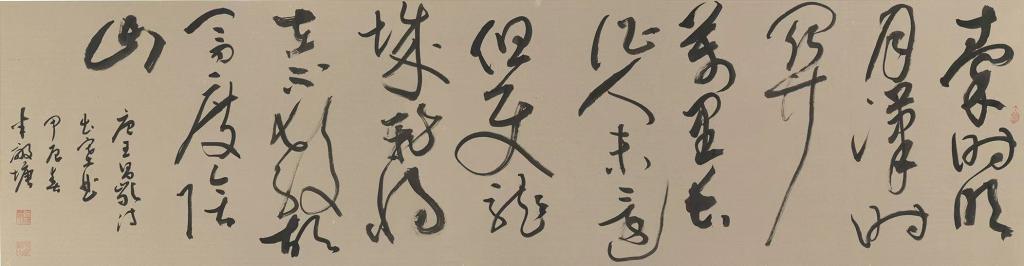 秦時明
月漢時
關
萬里長
征人未還
但使龍
城飛將
在不教胡
馬度陰
山
唐王昌齡詩
出塞
甲辰春
李